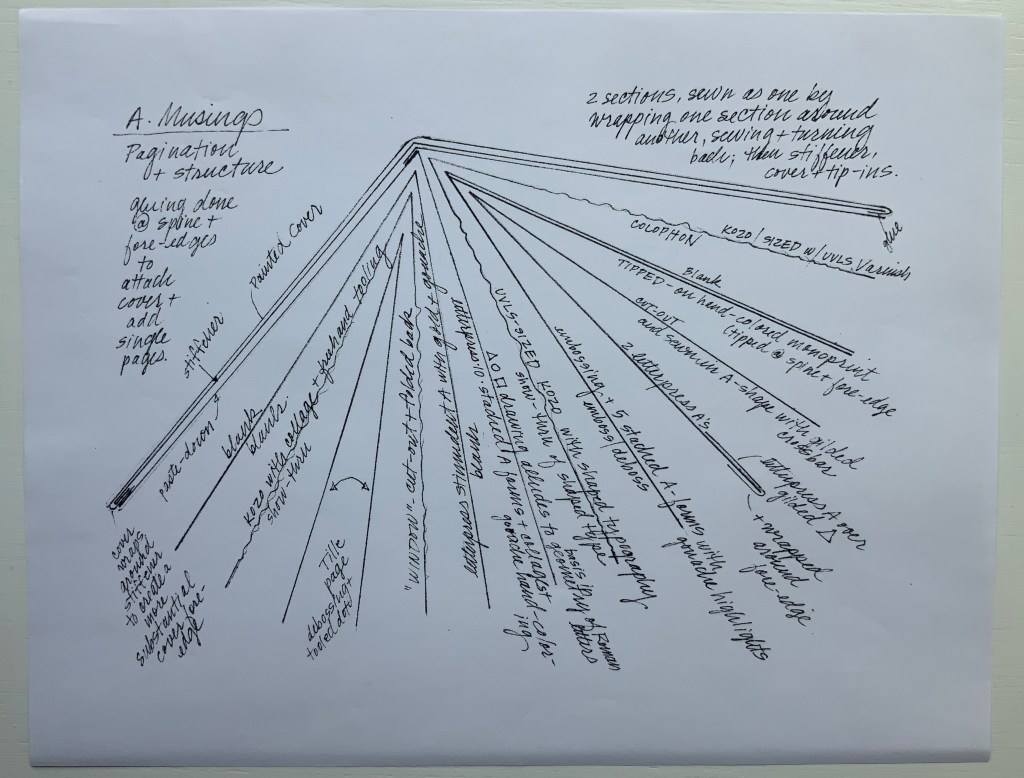 A. Musings
Pagination
+ structure
gluing done
@ spine +
fore-edges
to
attach
cover +
add
single
pages.
2 sections, sewn as one by
wrapping one section around
another, sewing + turning
back; then stiffener,
cover + tip-ins.
Painted cover
stiffener
paste-down
cover
wraps
around
stiffener
to create a
more
substantial
cover fore-
edge
blank
KOZO with collage + freehand tooling
show-turn
Title
page
debossing +
tooled dot
"WINDOWN- cut-out + folded back
letterpress stimulent A with gold + gouache
beam
stacked A forms + collaged +
gouache hand-color-
ing
△ ○ □ drawing alludes to geometry
basis of Roman
letters
UVLS-SIZED KOZO with shaped typography
show-turn of shaped type
embossing + 5 stacked A-forms with
emboss deboss
gouache highlights
2 letterpress A's
letterpress A over
gilded △
+ wrapped
around
fore-edge.
CUT-OUT
and sewn in A-shape with gilded
crossbar
Blank
TIPPED-on hand-colored monoprint
(tipped @ spine + fore-edge
COLOPHON
KOZO/SIZED w/UVLS. Varnish
glue